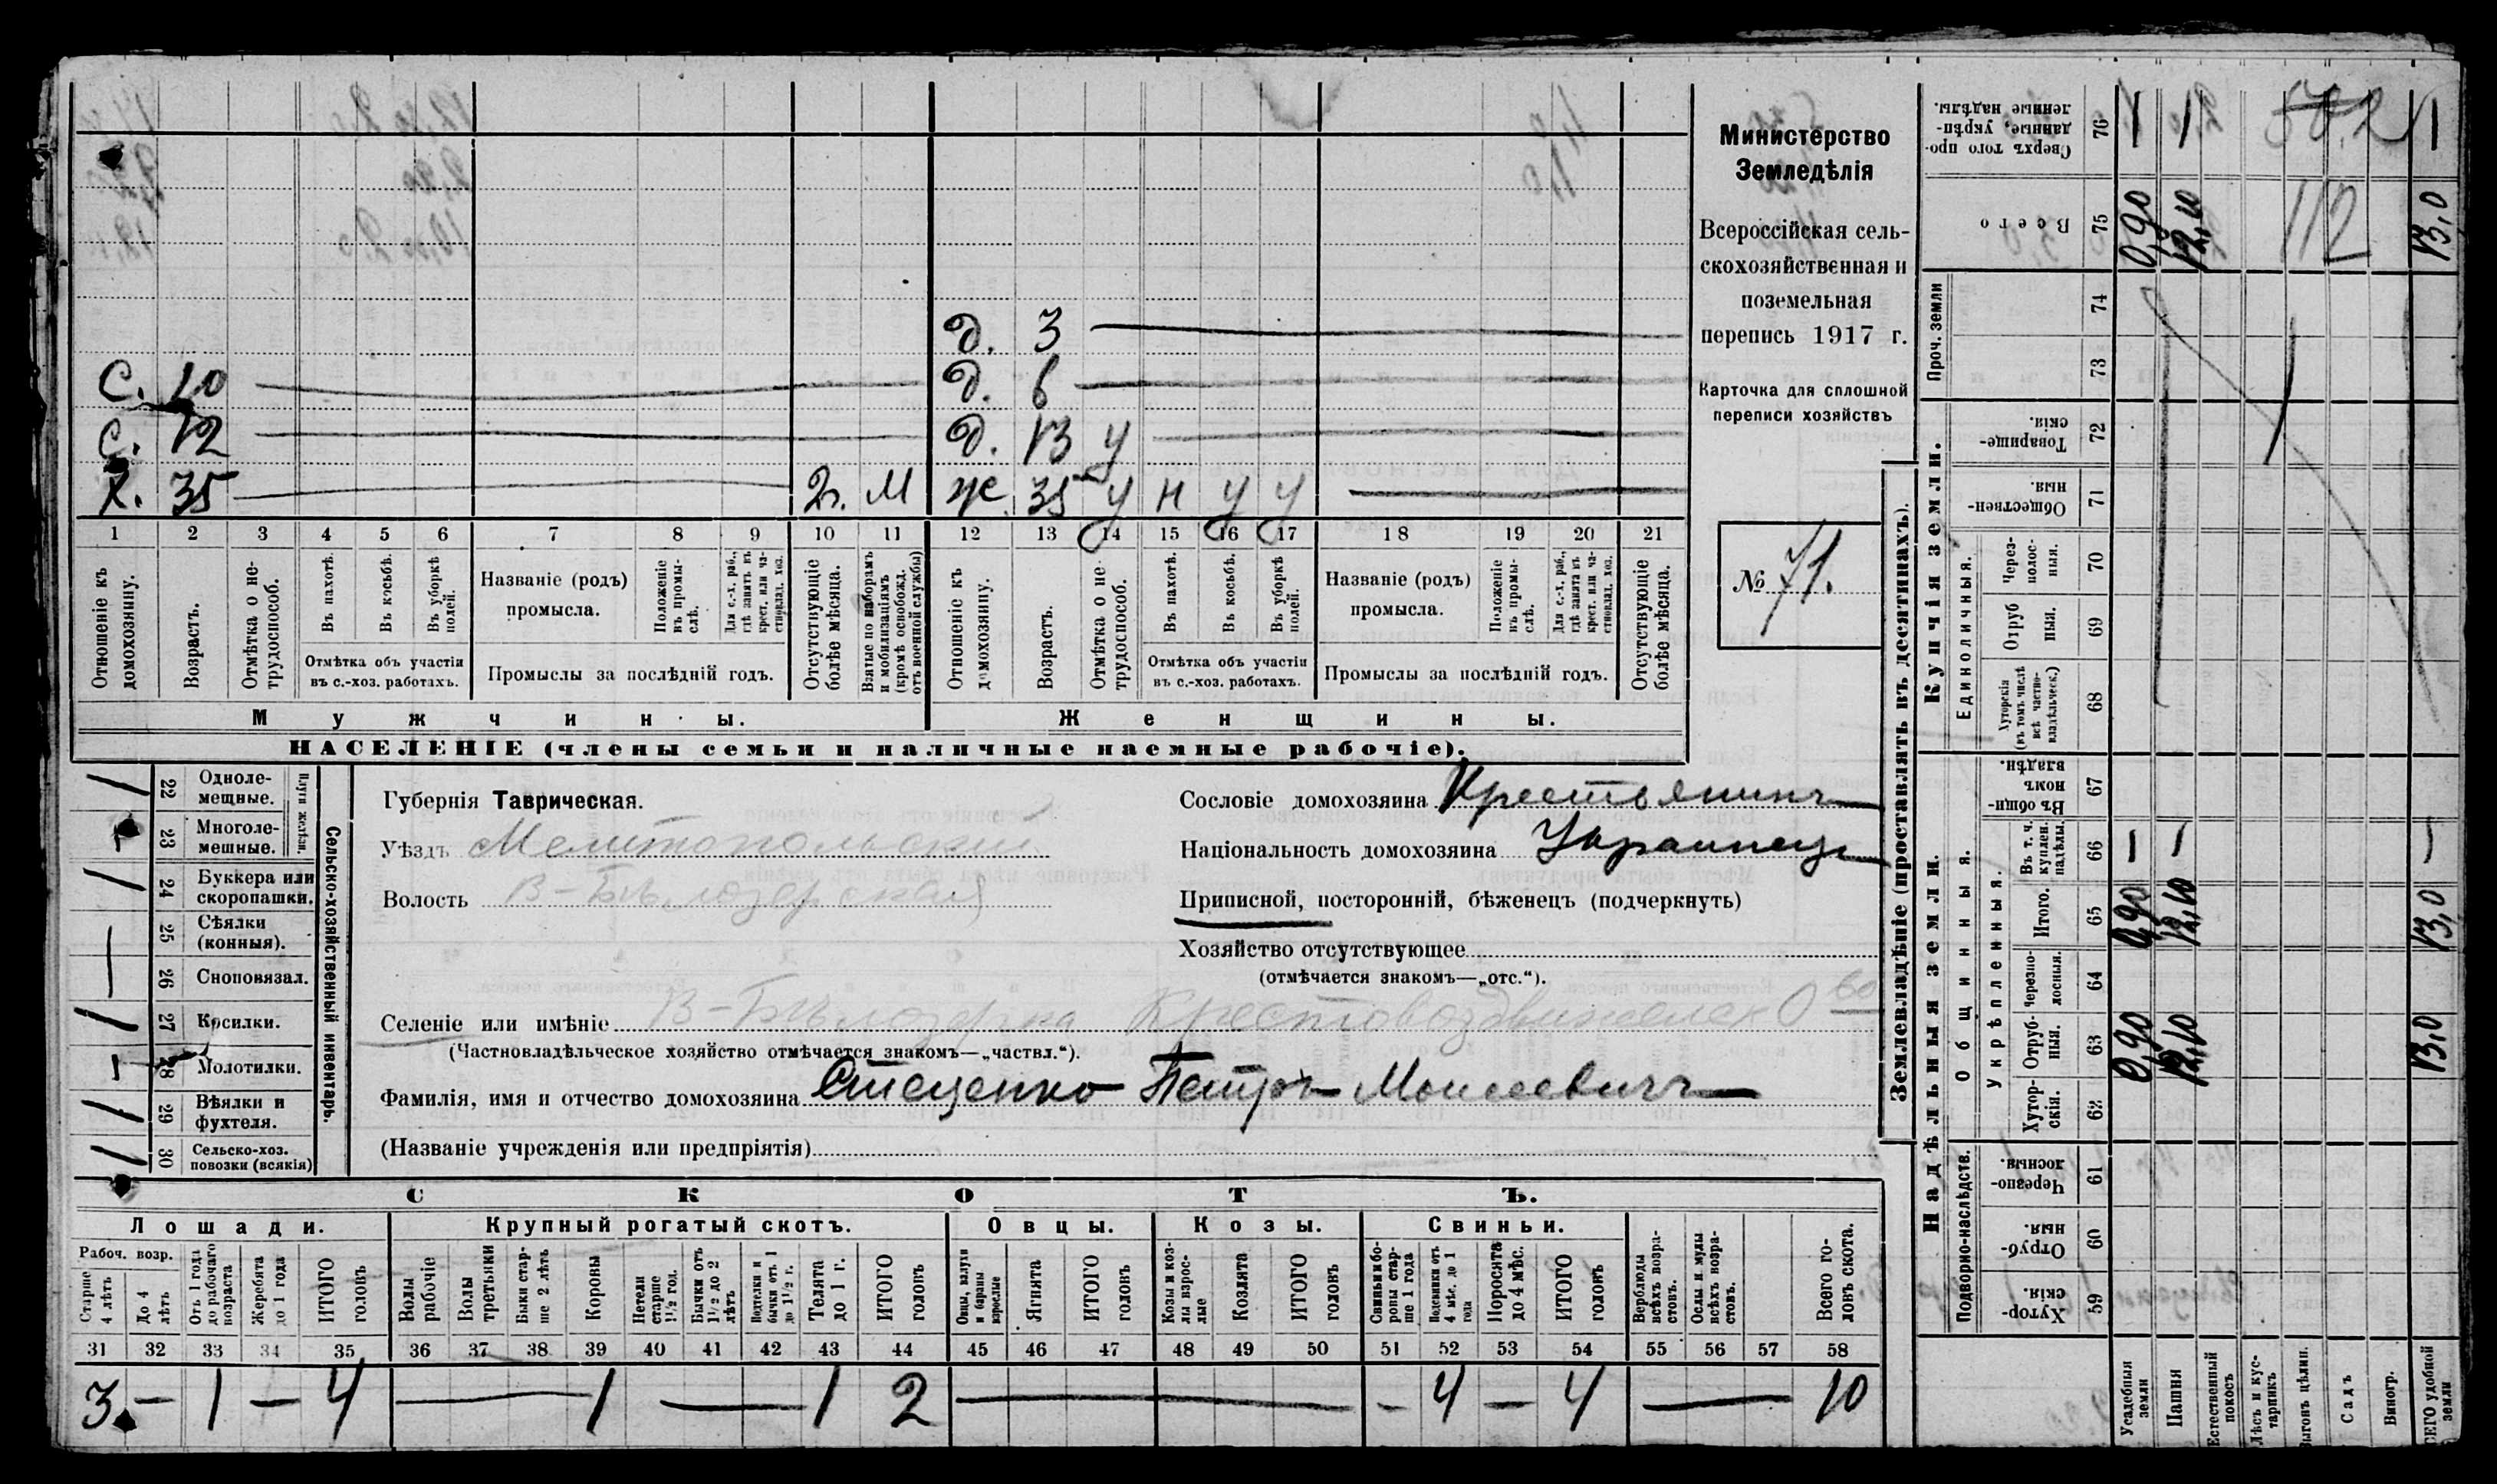 Министерство
Земледѣлія
Всероссійская сель-
скохозяйственная и
поземельная
перепись 1917 г.
Карточка для сплошной
переписи хозяйствъ
№ 71.
д. 3
с. 10 д. 6
с. 12 д. 13 у
х. 35 2г. М ж. 35 у н у у
1 2 3 4 5 6 7 8 9 10 11 12 13 14 15 16 17 18 19 20 21
Отношеніе къ домохозяину.
Возрастъ.
Отмѣтка о не-трудоспособ.
Въ пахотѣ.
Въ косьбѣ.
Въ уборкѣ полей.
Отмѣтка объ участіи
въ с.-хоз. работахъ.
Названіе (родъ)
промысла.
Положеніе въ промы-слѣ.
Для с.-х. раб., гдѣ занятъ въ крест. или ча-стновлад. хоз.
Промыслы за послѣдній годъ.
Отсутствующіе болѣе мѣсяца.
Взятые по наборамъ и мобилизаціямъ (кромѣ освобожд. отъ военной службы)
Отношеніе къ домохозяину.
Возрастъ.
Отмѣтка о не-трудоспособ.
Въ пахотѣ.
Въ косьбѣ.
Въ уборкѣ полей.
Отмѣтка объ участіи
въ с.-хоз. работахъ.
Названіе (родъ)
промысла.
Положеніе въ промы-слѣ.
Для с.-х. раб., гдѣ занята въ крест. или ча-стновлад. хоз.
Промыслы за послѣдній годъ.
Отсутствующіе болѣе мѣсяца.
Мужчины. Женщины.
НАСЕЛЕНІЕ (члены семьи и наличные наемные рабочіе).
Сельско-хозяйственный инвентарь.
Плуги желѣзн.
22 Одноле-мешные.
23 Многоле-мешные.
24 Буккера или скоропашки.
25 Сѣялки (конныя).
26 Сноповязал.
27 Косилки.
28 Молотилки.
29 Вѣялки и фухтеля.
30 Сельско-хоз. повозки (всякія)
Губернія Таврическая.
Уѣздъ Мелитопольский
Волость В-Бѣлозерская
Сословіе домохозяина Крестьянинъ
Національность домохозяина Украинецъ
Приписной, посторонній, бѣженецъ (подчеркнуть)
Хозяйство отсутствующее
(отмѣчается знакомъ—„отс.“).
Селеніе или имѣніе В-Бѣлозерка Крестовоздвиженск О 60
(Частновладѣльческое хозяйство отмѣчается знакомъ—„частвл.“).
Фамилія, имя и отчество домохозяина Стеценко Петръ Моисеевичъ
(Названіе учрежденія или предпріятія)
СКОТЪ.
Лошади. Крупный рогатый скотъ. Овцы. Козы. Свиньи.
Рабоч. возр.
Старше 4 лѣтъ
До 4 лѣтъ
Отъ 1 года до рабочаго возраста
Жеребята до 1 года
ИТОГО головъ
Волы рабочіе
Волы третьяки
Быки стар-ше 2 лѣтъ
Коровы
Нетели старше 1½ год.
Бычки отъ 1½ до 2 лѣтъ
Подтелки и бычки отъ 1 до 1½ г.
Телята до 1 г.
ИТОГО головъ
Овцы, валухи и бараны взрослые
Ягнята
ИТОГО головъ
Козы и коз-лы взрос-лые
Козлята
ИТОГО головъ
Свиньи и бо-ровы стар-ше 1 года
Подсвинки отъ 4 мѣс. до 1 года
Поросята до 4 мѣс.
ИТОГО головъ
Верблюды всѣхъ возра-стовъ.
Ослы и мулы всѣхъ возра-стовъ.
Всего го-ловъ скота.
31 32 33 34 35 36 37 38 39 40 41 42 43 44 45 46 47 48 49 50 51 52 53 54 55 56 57 58
3 – 1 – 4 — 1 — 1 2 — – 4 – 4 — 10
Землевладѣніе (проставлять въ десятинахъ).
Надѣльныя земли.
Купчія земли.
Подворно-наслѣдств.
Общинныя.
Укрѣпленныя.
Единоличныя.
Проч. земли
Хутор-скія. 59
Отруб-ныя. 60
Черезпо-лосныя. 61
Хутор-скія. 62
Отруб-ныя. 63 0,90 12,10 13,0
Черезпо-лосныя. 64
Итого. 65 0,90 12,10 13,0
Въ т. ч. куплен. надѣлы. 66 – – –
Въ общи-номъ владѣн. 67
Хуторскія (въ томъ числѣ всѣ частно-владѣльческ.) 68
Отруб ныя. 69
Через-полос-ныя. 70
Обществен-ныя. 71
Товарище-скія. 72
73
74
Всего 75 0,90 12,10 112 13,0
Сверхъ того про-данные, укрѣп-ленные надѣлы. 76 – – –
Усадебныя земли
Пашня
Естественный покосъ
Лѣсъ и кус-тарникъ
Выгонъ цѣлин.
Садъ
Виногр.
ВСЕГО удобной земли